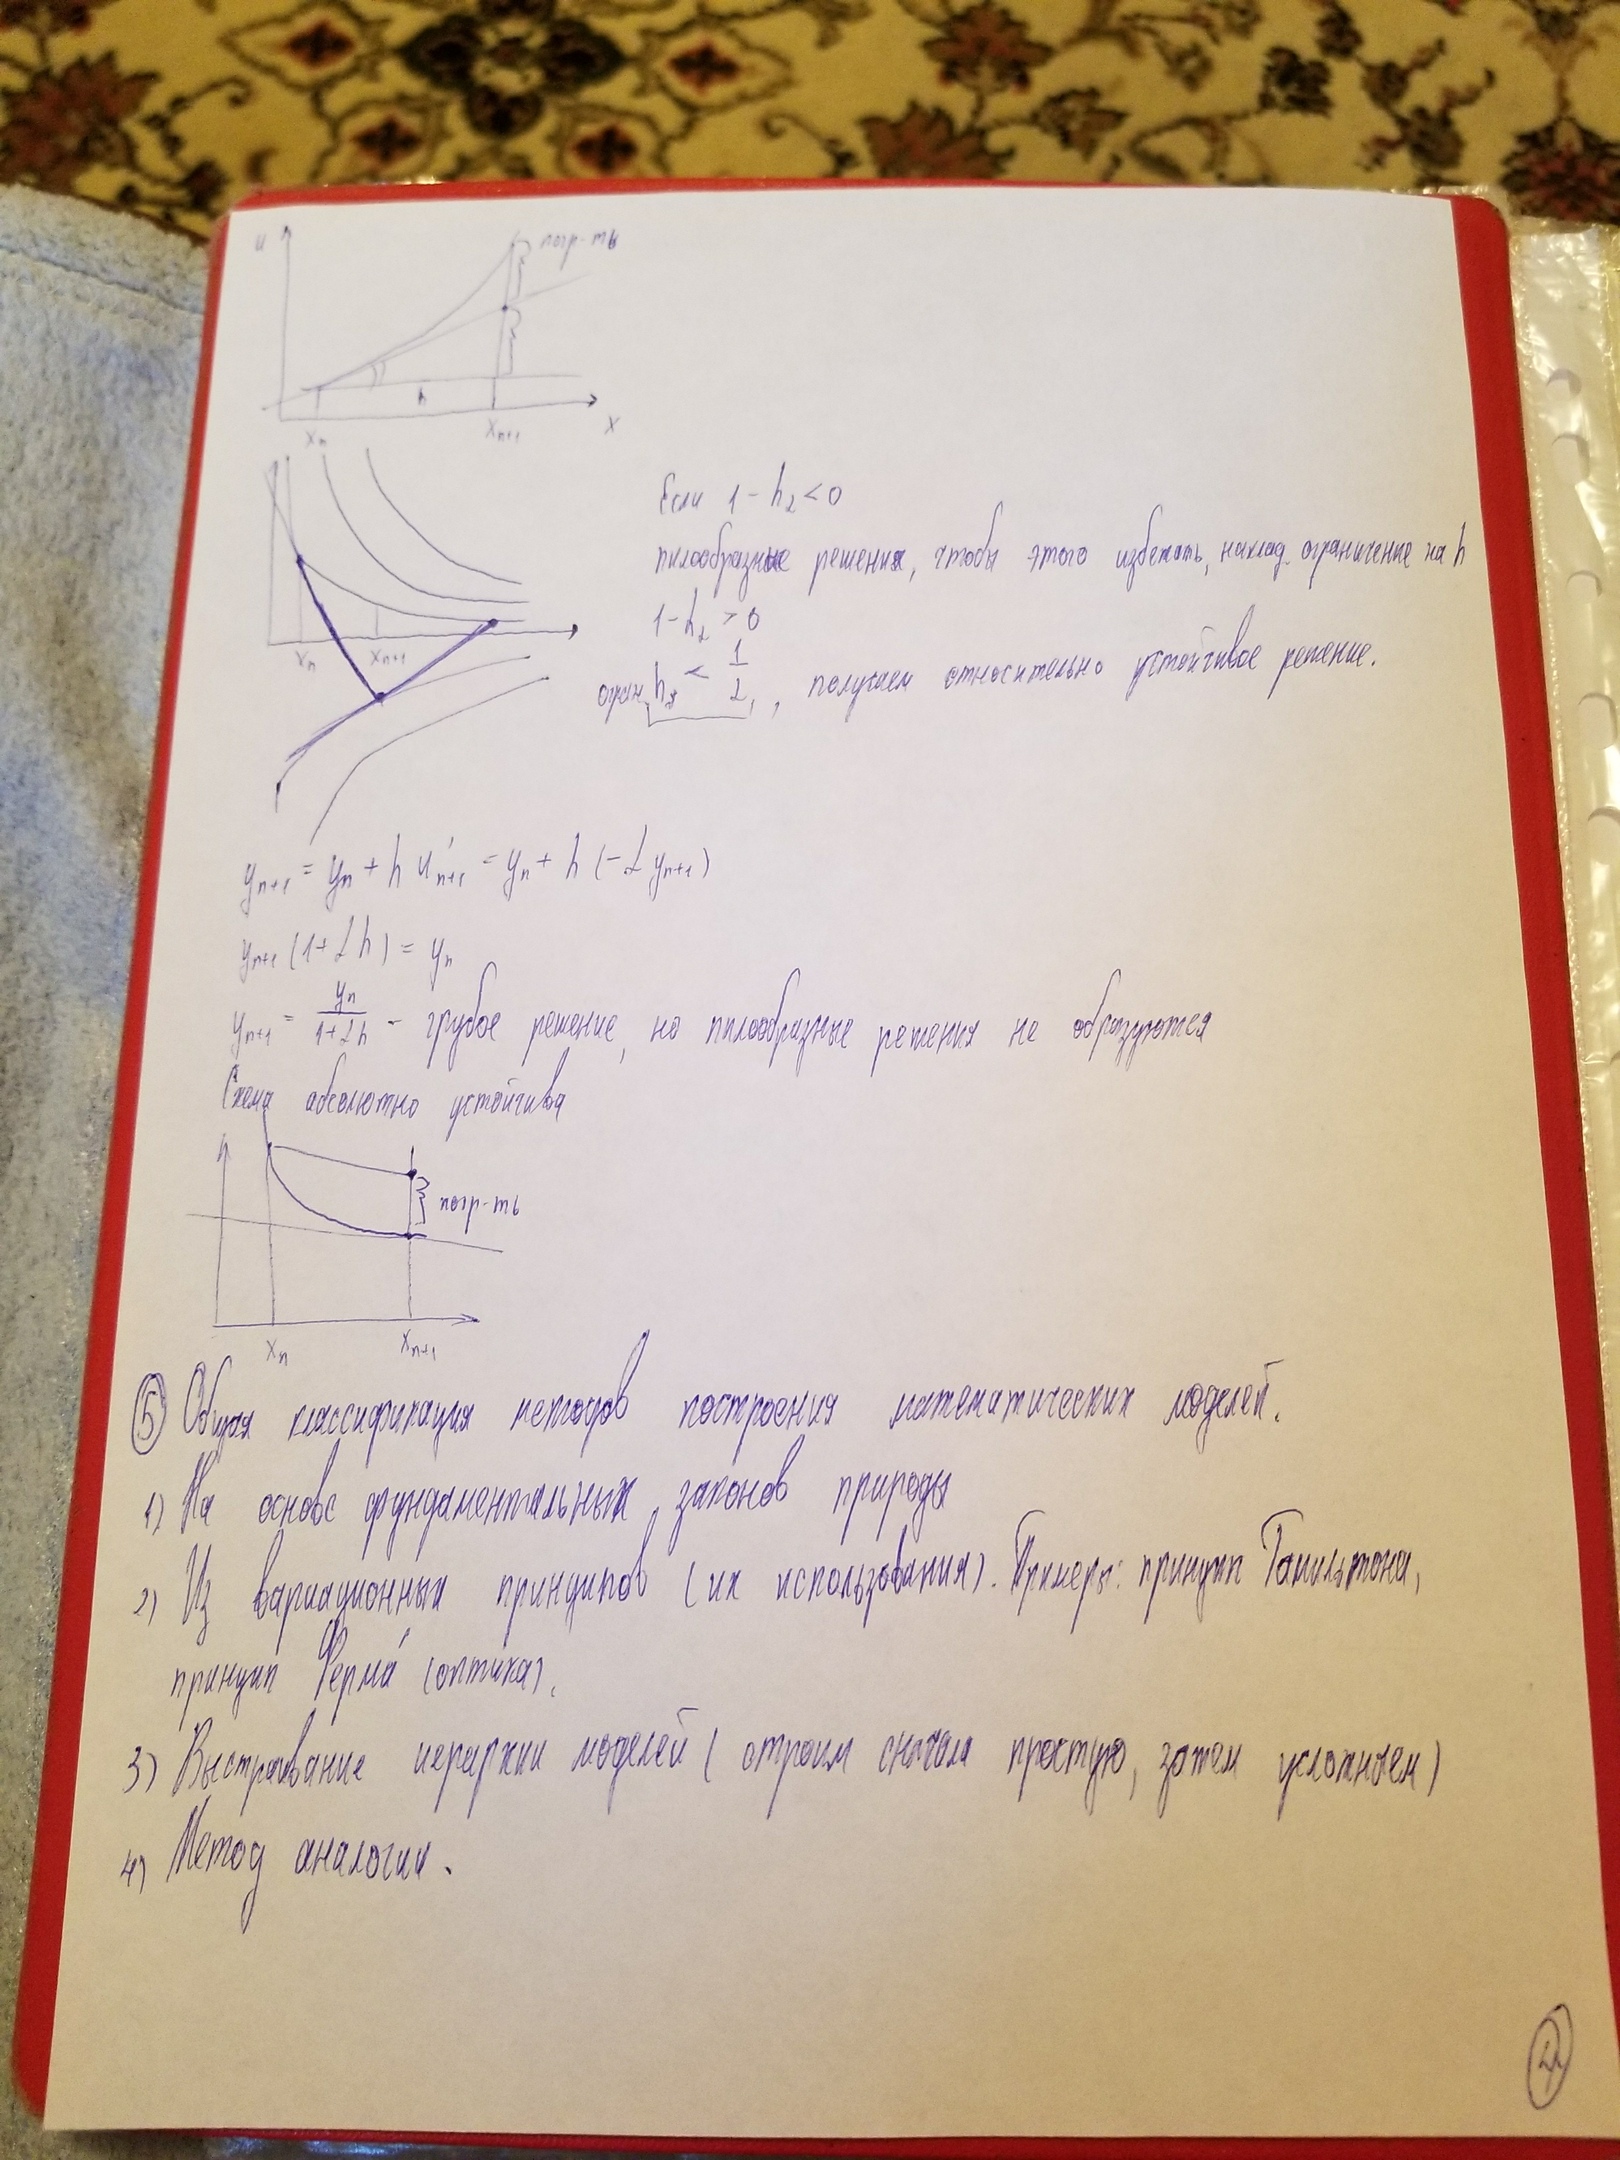 u
погр-ть
h
xₙ
xₙ₊₁
x
Если 1 - hα < 0
пилообразные решения, чтобы этого избежать, наклад. ограничение на h
1 - hα > 0
xₙ
xₙ₊₁
огран. h < 1/α, получаем относительно устойчивое решение.
yₙ₊₁ = yₙ + h u'ₙ₊₁ = yₙ + h (-α yₙ₊₁)
yₙ₊₁ (1 + αh) = yₙ
yₙ₊₁ = yₙ/(1 + αh) - грубое решение, но пилообразные решения не образуются
Схема абсолютно устойчива
погр-ть
xₙ
xₙ₊₁
5 Общая классификация методов построения математических моделей.
1) На основе фундаментальных законов природы
2) Из вариационных принципов (их использования). Примеры: принцип Гамильтона,
принцип Ферма́ (оптика).
3) Выстраивание иерархии моделей (строим сначала простую, затем усложняем)
4) Метод аналогии.
4